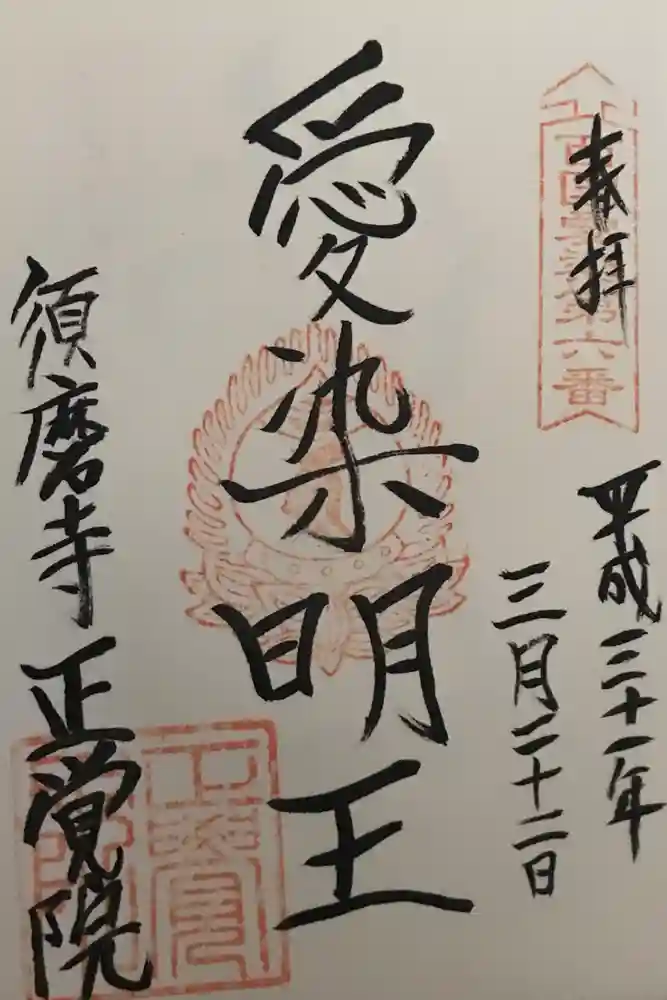 奉拝
西国愛染第六番
平成三十一年
三月二十二日
愛染明王
須磨寺正覚院